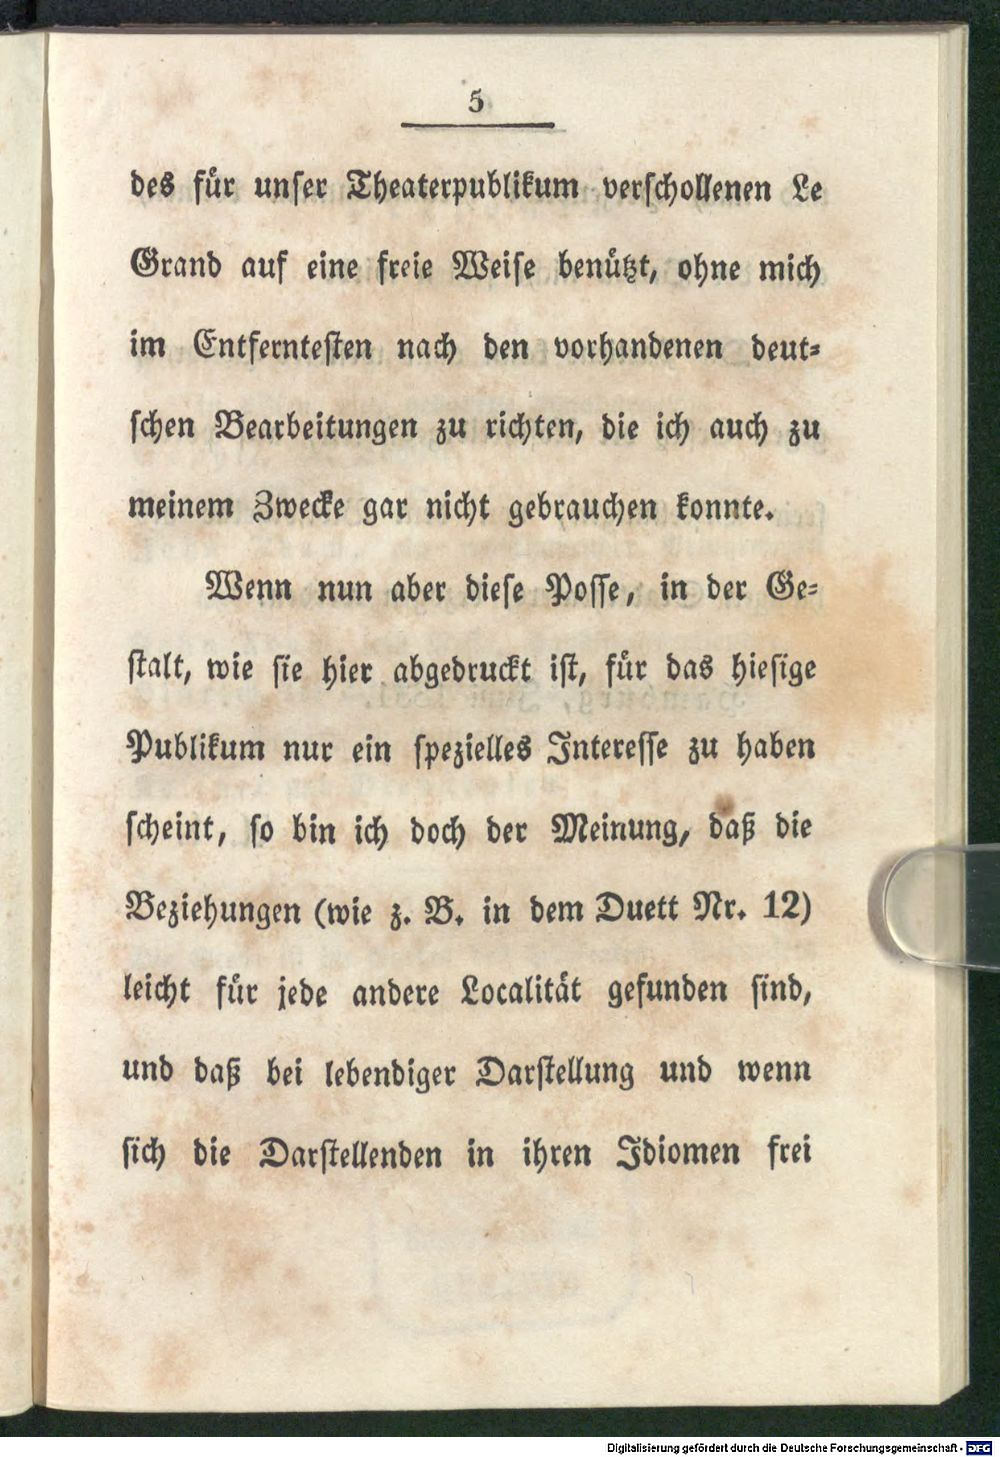 5
des für unser Theaterpublikum verschollenen Le
Grand auf eine freie Weise benützt, ohne mich
im Entferntesten nach den vorhandenen deut-
schen Bearbeitungen zu richten, die ich auch zu
meinem Zwecke gar nicht gebrauchen konnte.
Wenn nun aber diese Posse, in der Ge-
stalt, wie sie hier abgedruckt ist, für das hiesige
Publikum nur ein spezielles Interesse zu haben
scheint, so bin ich doch der Meinung, daß die
Beziehungen (wie z. B. in dem Duett Nr. 12)
leicht für jede andere Localität gefunden sind,
und daß bei lebendiger Darstellung und wenn
sich die Darstellenden in ihren Idiomen frei
Digitalisierung gefördert durch die Deutsche Forschungsgemeinschaft - DFG